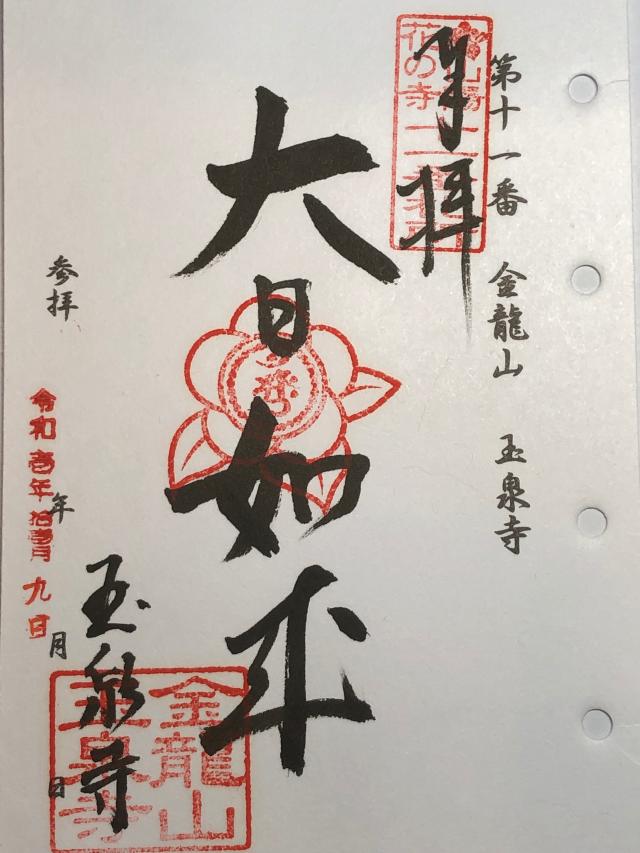 第十一番 金龍山 玉泉寺
奉拝
山陽
花の寺
大日如来
参拝
年
月
日
令和壱年拾壱月九日
玉泉寺
金龍山
玉泉寺